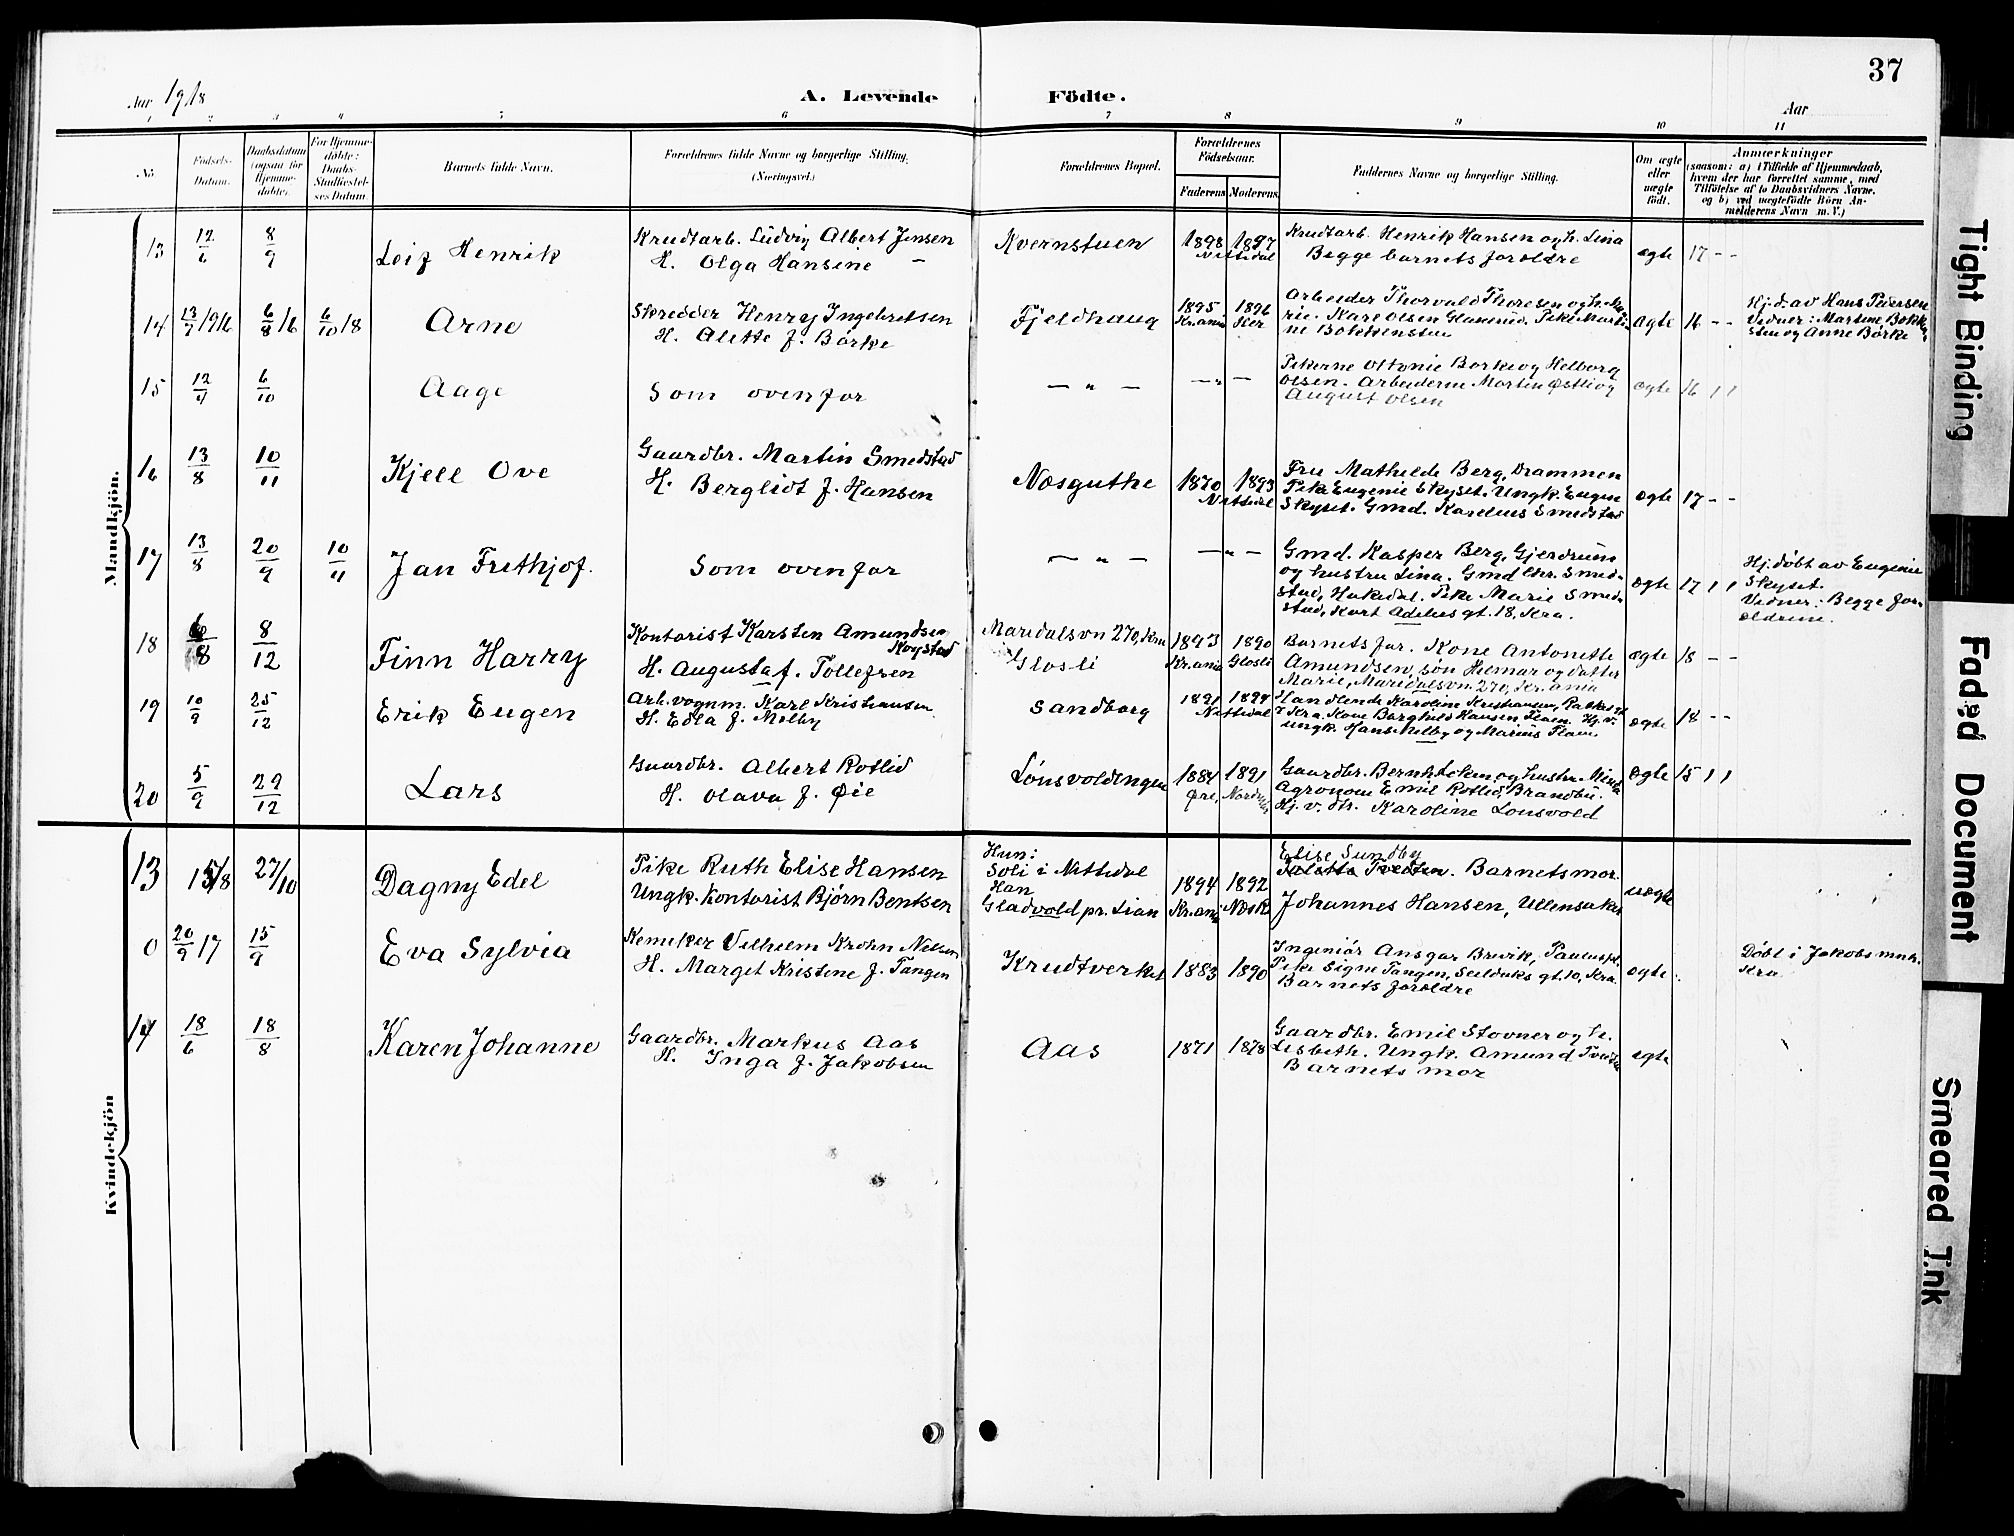 37
Aar 1918
A. Levende Födte.
Aar
1 2 3 4 5 6 7 8 9 10 11
No. Fødsels-Datum. Daabsdatum (ogsaa for Hjemme-døbte). For Hjemme-døbte: Daabs-Stadfæstel-ses Datum. Barnets fulde Navn. Forældrenes fulde Navne og borgerlige Stilling. (Næringsvei.) Forældrenes Bopæl. Forældrenes Fødselsaar. Faderens Moderens Faddernes Navne og borgerlige Stilling. Om ægte eller uægte født. Anmærkninger (saasom: a) i Tilfælde af Hjemmedaab, hvem der har forrettet samme, med Tilføielse af to Daabsvidners Navne, og b) ved uægtefødte Børn An-melderens Navn m. V.)
Mandkjön.
13 12/6 8/9 Leif Henrik Krudtarb. Ludvig Albert Jensen Kvernstuen 1898 1897 Krudtarb. Henrik Hansen og h. Lina ægte 17 - -
H. Olga Hansine Nittedal Begge barnets forældre
14 13/7 1916 6/8 16 6/10 18 Arne Skredder Henry Ingebretsen Fjeldhaug 1895 1896 Arbeider Thorvald Thoresen og h. Ma- ægte 16 - - Hj.d. av Hans Pedersen
H. Alette f. Børke Kr.ania Her rie. Kare Olsen Glasrud, Pike Marti- Vidner: Martine Bokken-
ne Bokkenstuen sten og Anne Børke
15 12/4 6/10 Aage Som ovenfor — " — — " — Pikerne Ottonie Borke og Helborg ægte 16 , ,
Olsen. Arbeiderne Martin Østli og
August Olsen
16 13/8 10/11 Kjell Ove Gaardbr. Martin Smedstad Næsguthe 1870 1893 Fru Mathilde Berg, Drammen ægte 17 - -
H. Bergliot f. Hansen Nittedal Pike Eugenie Skyset. Ungk. Eugen
Skyset. Gmd. Karelius Smedstad
17 13/8 20/9 10/11 Jan Frithjof. Som ovenfor — " — — " — Gmd. Kasper Berg, Gjerdrum ægte 17 , , Hj. døbt av Eugenie
og hustru Lina. Gmd Chr. Smed- Skyset.
stad, Hakedal. Pike Marie Smed- Vidner: Begge for-
stad, Kurt Adelers gt. 18, Kra. ældrene.
18 8 8/12 Finn Harry Kontorist Karsten Amundsen Maridalsvn 270, Kra 1893 1890 Barnets far. Kone Antonette ægte 18 - -
Røystad
H. Augusta f. Tollefsen Glosli Kr.ania Glosli Amundsen, søn Hilmar og datter
Marie, Maridalsvn. 270, Kr.ania
19 10/9 25/12 Erik Eugen Arb. vognm. Karl Kristiansen Sandborg 1891 1894 Handlende Karoline Kristiansen ægte 18 - -
H. Edla f. Melby Nittedal Kra. Kone Borghild Hansen Flaen. Hj. v.
Ungk. Hans Melby og Marius Flaen
20 5/9 29/12 Lars Gaardbr. Albert Rotlid Lønsvoldengen 1884 1891 Gaardbr. Bernh. og hustr. ægte 15 , ,
H. Olava f. Øie Øre, Agronom Emil Rotlid, Brandbu.
Hj. v. dtr. Karoline Lonsvold
Kvindekjön
13 15/8 27/10 Dagny Edel Pike Ruth Elise Hansen Hun: Soli i Nittedal 1894 1892 Elise Sundby Barnets mor. uægte
Ungk. Kontorist Bjørn Bentsen Han Gladvold pr. Lian Kr.ania Næsk Johannes Hansen, Ullensaker
0 20/9 17 15/9 Eva Sylvia Kemiker Vilhelm Krohn Nilsen Krudtverket 1883 1890 Ingeniør Ansgar Brevik, Pauluspl. ægte Døbt i Jakobs mnh.
H. Marget Kristine f. Tangen Pike Signe Tangen, Seilduks gt. 10, Kra. Kra
Barnets forældre
14 18/6 18/8 Karen Johanne Gaardbr. Markus Aas Aas 1871 1878 Gaardbr. Emil Stovner og h. ægte
H. Inga f. Jakobsen Lisbeth. Ungk. Amund
Barnets mor
Tight Binding
Faded Document
Smeared Ink